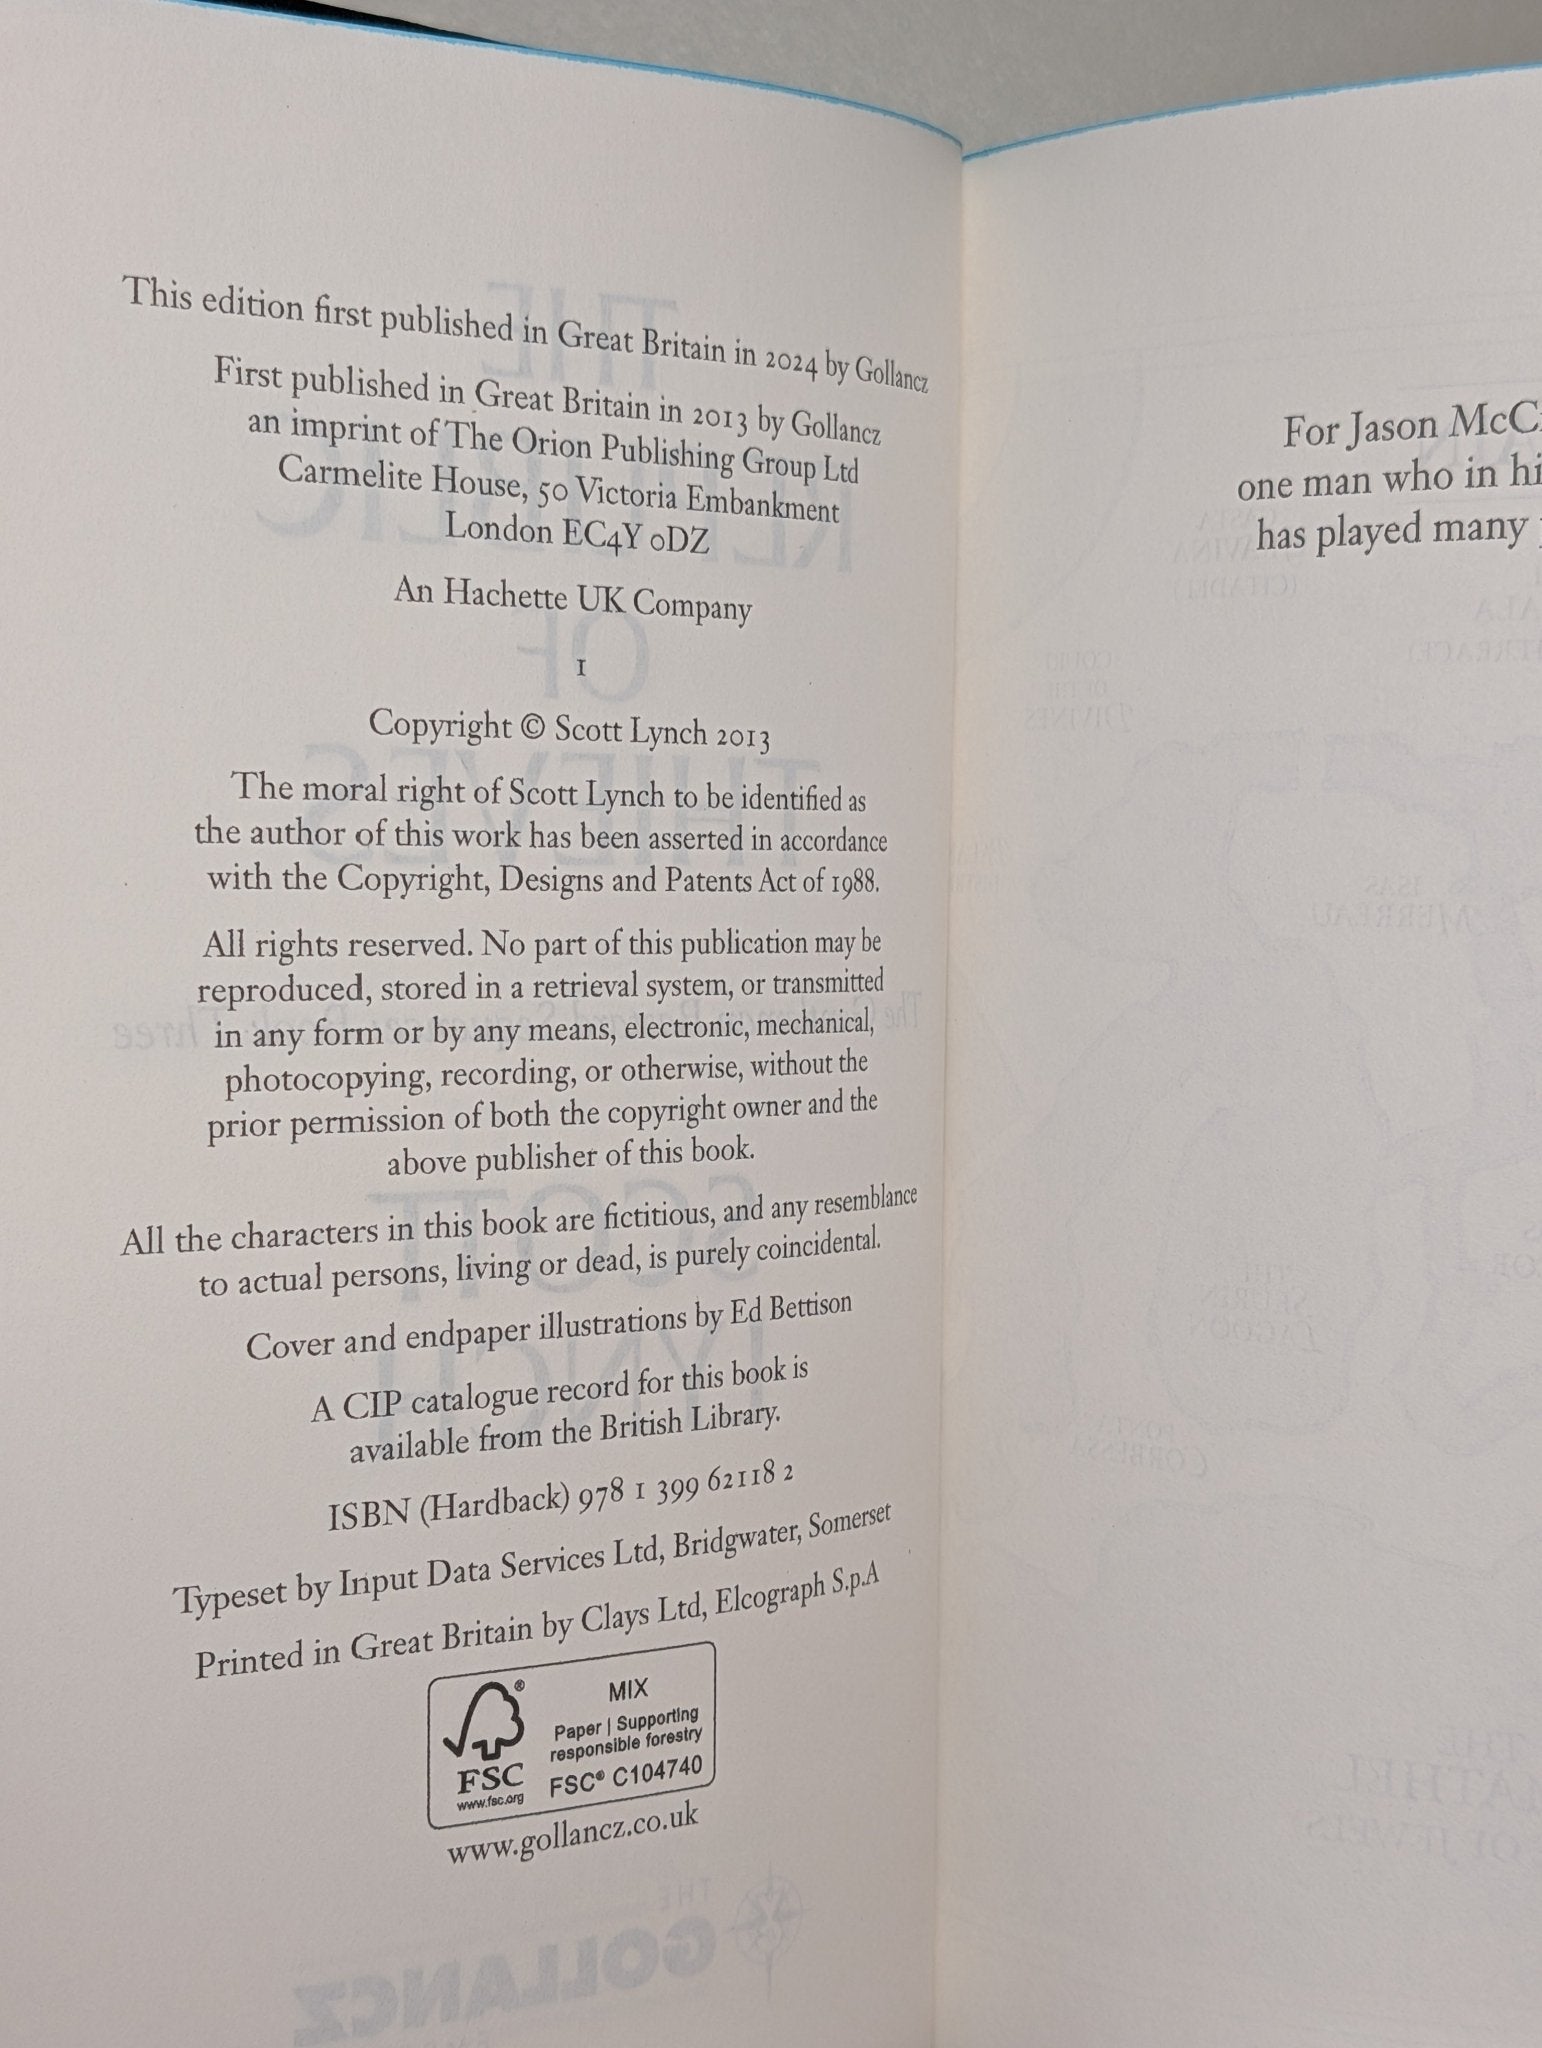 This edition first published in Great Britain in 2024 by Gollancz
First published in Great Britain in 2013 by Gollancz
an imprint of The Orion Publishing Group Ltd
Carmelite House, 50 Victoria Embankment
London EC4Y 0DZ
An Hachette UK Company
1
Copyright © Scott Lynch 2013
The moral right of Scott Lynch to be identified as
the author of this work has been asserted in accordance
with the Copyright, Designs and Patents Act of 1988.
All rights reserved. No part of this publication may be
reproduced, stored in a retrieval system, or transmitted
in any form or by any means, electronic, mechanical,
photocopying, recording, or otherwise, without the
prior permission of both the copyright owner and the
above publisher of this book.
All the characters in this book are fictitious, and any resemblance
to actual persons, living or dead, is purely coincidental.
Cover and endpaper illustrations by Ed Bettison
A CIP catalogue record for this book is
available from the British Library.
ISBN (Hardback) 978 1 399 62118 2
Typeset by Input Data Services Ltd, Bridgwater, Somerset
Printed in Great Britain by Clays Ltd, Elcograph S.p.A
FSC
www.fsc.org
MIX
Paper | Supporting
responsible forestry
FSC® C104740
www.gollancz.co.uk
For Jason
one man who in
has played many